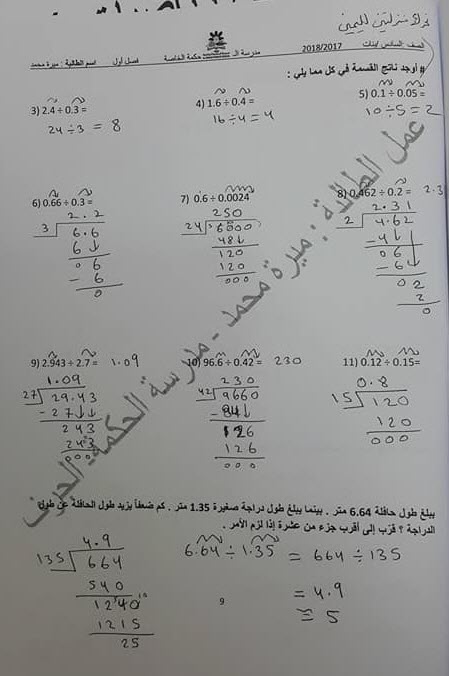 نحرك منزلتين لليمين
الصف السادس / بنات 2018/2017 مدرسة الـ حكمة الخاصة فصل أول اسم الطالبة : ميرة محمد
# أوجد ناتج القسمة في كل مما يلي :
3) 2.4 ÷ 0.3 =
24 ÷ 3 = 8
4) 1.6 ÷ 0.4 =
16 ÷ 4 = 4
5) 0.1 ÷ 0.05 =
10 ÷ 5 = 2
6) 0.66 ÷ 0.3 =
2.2
3 6.6
6
0 6
- 6
0
7) 0.6 ÷ 0.0024
250
24 6000
48
120
120
000
8) 0.462 ÷ 0.2 = 2.3
2.31
2 4.62
- 4
0 6
- 6
0 2
2
0
9) 2.943 ÷ 2.7 = 1.09
1.09
27 29.43
- 27
243
243
000
10) 96.6 ÷ 0.42 = 230
230
42 9660
- 84
126
126
000
11) 0.12 ÷ 0.15=
0.8
15 120
120
000
يبلغ طول حافلة 6.64 متر . بينما يبلغ طول دراجة صغيرة 1.35 متر . كم ضعفاً يزيد طول الحافلة عن طول
الدراجة ؟ قرّب إلى أقرب جزء من عشرة إذا لزم الأمر .
4.9
135 664
540
1240
1215
25
6.64 ÷ 1.35 = 664 ÷ 135
= 4.9
≅ 5
9
عمل الطالبة : ميرة محمد - مدرسة الحكمة